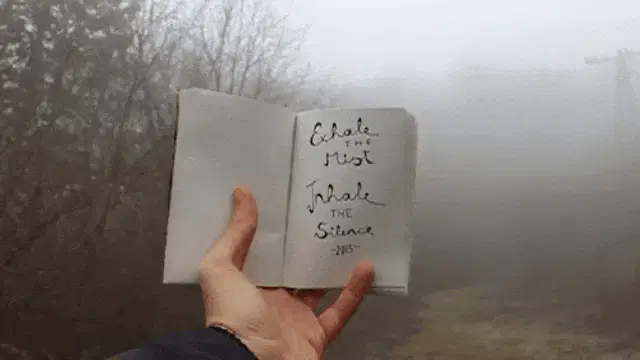 Exhale
THE
Mist
Inhale
THE
Silence
-2015-